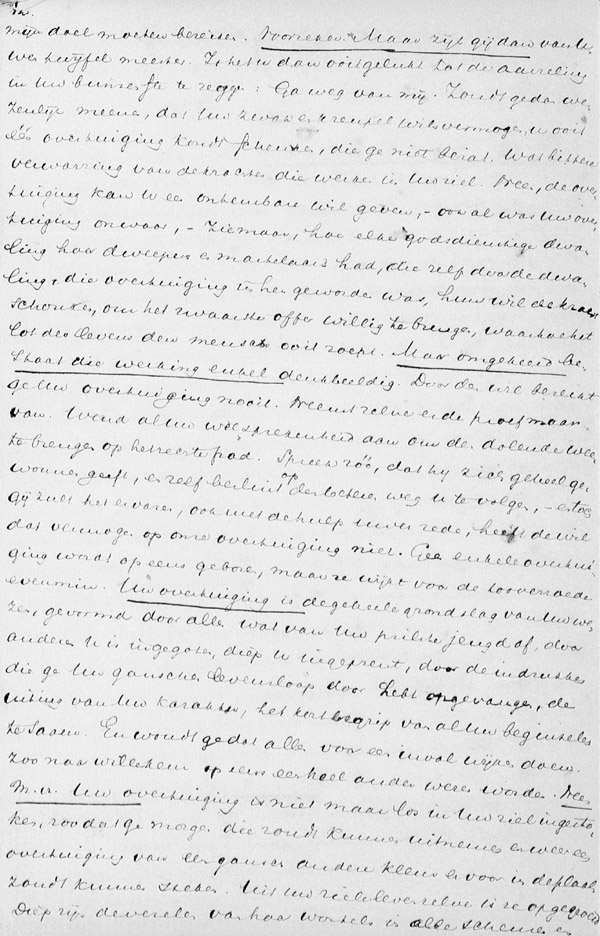 mijn doel moeten bereiken. Voorzeker. Maar zijt gij dan van Uw
wer twijfel meester. Is het U dan ooit gelukt tot de aarzeling
in Uw binnenste te zeggen: Ga weg van mij. Zoudt ge dan we-
zenlijk meenen, dat Uw zwak en kreupel wilsvermogen, U ooit
één overtuiging kondt schenken, die ge niet bezat. Wat bittere
verwarring van de krachten die werken in Uw ziel. Neen, de over-
tuiging kan U een ontembare wil geven, - ook al was Uw over-
tuiging onwaar, - zie maar, hoe elke godsdienstige dwa-
ling haar dweepers en martelaars had, die zelf door de dwa-
ling, die overtuiging in hen geworden was, hun wil de kracht
schonken, om het zwaarste offer willig te brengen, waartoe het
lot des levens den mensch ooit roept. Maar omgekeerd be-
staat die werking enkel denkbeeldig. Door den wil bereikt
ge Uw overtuiging nooit. Neemt zelve er de proef maar
van. Wend al Uw welsprekendheid aan om den dolende weer
te brengen op het rechte pad. Spreek zóó, dat hij zich geheel ge-
wonnen geeft, en zelf besluit op den lateren weg U te volgen, - en toch
gij zult het ervaren, ook met de hulp uwer rede, heeft de wil
dat vermogen op onze overtuiging niet. Geen enkele overtui-
ging wordt opeens geboren, maar ze wijkt voor de tooverroede
evenmin. Uw overtuiging is de geheele grondslag van Uw we-
zen, gevormd door alles wat van Uw prilste jeugd af, door
anderen U is ingegoten, diep U ingeprent, door de indrukken
die ge Uw ganschen levensloop door hebt opgevangen, de
uiting van Uw karakter, het kort begrip van al Uw beginselen
te saam. En woudt ge dat alles voor een inval wijken doen.
Zoo naar willekeur opeens een heel ander wezen worden. Neen
M. v. Uw overtuiging is niet maar los in Uw ziel ingesto-
ken, zoodat ge morgen die zoudt kunnen uitnemen en weer een
overtuiging van een gansch andere kleur er voor in de plaats
zoudt kunnen steken. Uit Uw zieleleven zelve is ze opgegroeid
Diep zijn de vezelen van haar wortels in alle schemer en